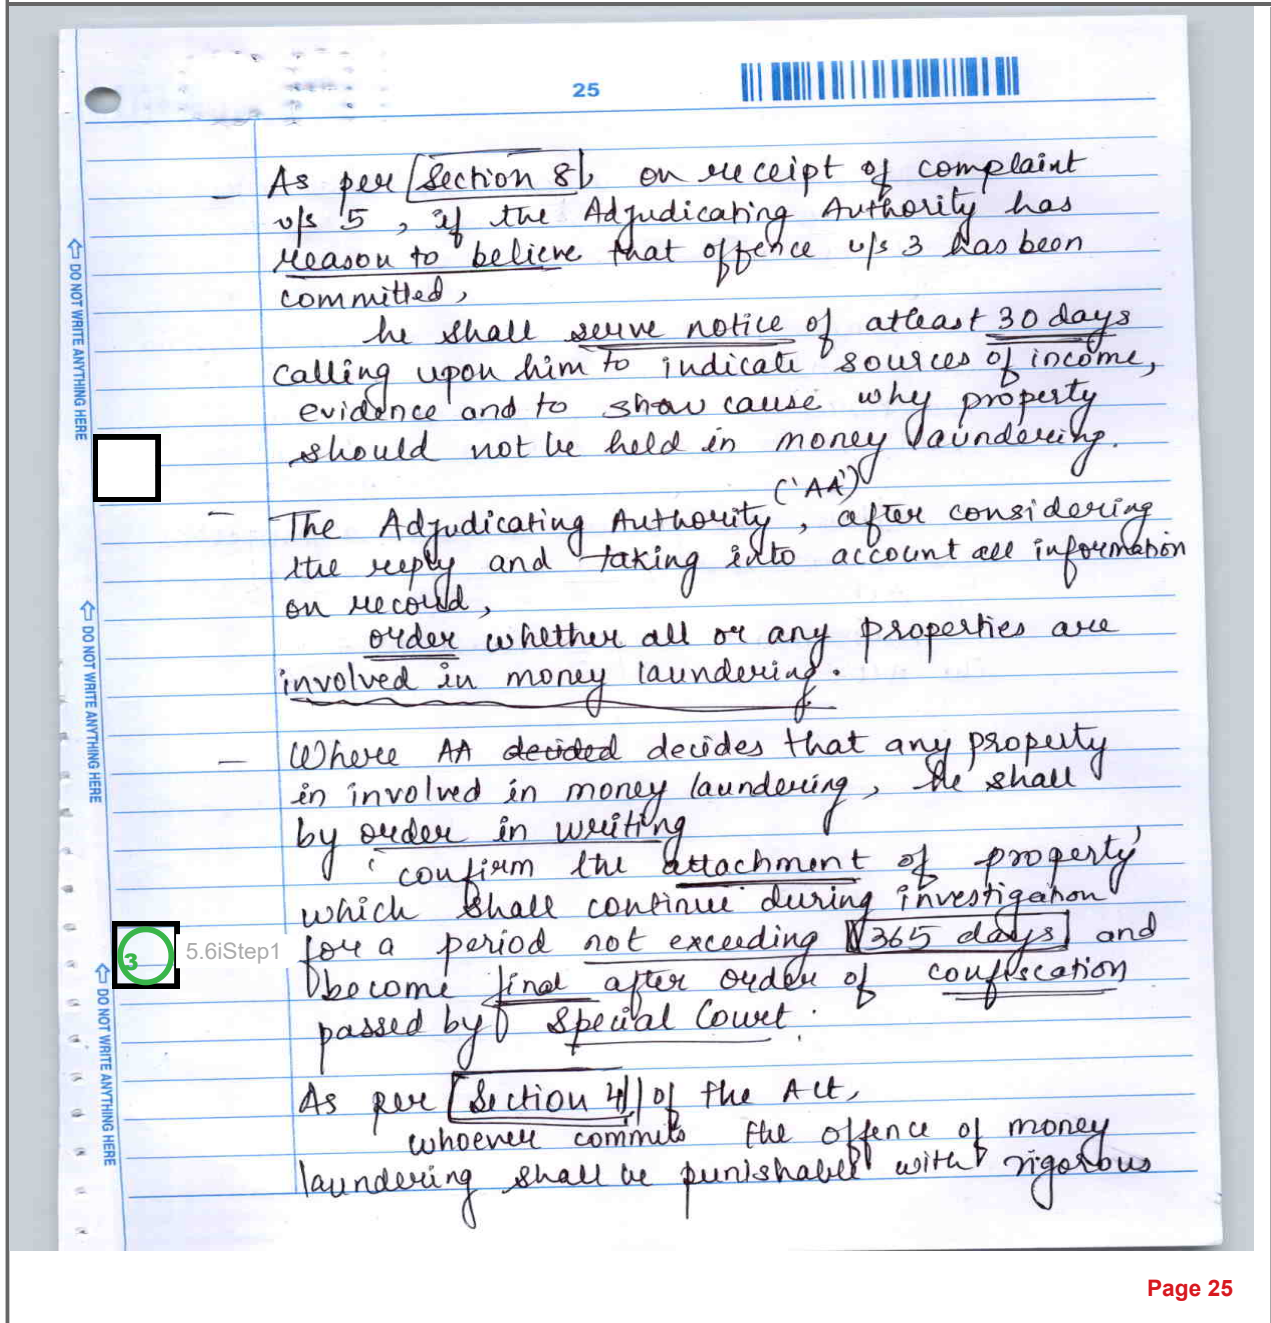 25
- As per Section 8, on receipt of complaint
u/s 5, if the Adjudicating Authority has
reason to believe that offence u/s 3 has been
committed,
he shall serve notice of atleast 30 days
calling upon him to indicate sources of income,
evidence and to show cause why property
should not be held in money laundering.
('AA')
- The Adjudicating Authority, after considering
the reply and taking into account all information
on record,
order whether all or any properties are
involved in money laundering.
- Where AA decided decides that any property
in involved in money laundering, he shall
by order in writing
confirm the attachment of property
which shall continue during investigation
3 5.6iStep1 for a period not exceeding 365 days and
become final after order of confiscation
passed by Special Court.
As per Section 4 of the Act,
whoever commits the offence of money
laundering shall be punishable with rigorous
DO NOT WRITE ANYTHING HERE
DO NOT WRITE ANYTHING HERE
DO NOT WRITE ANYTHING HERE
Page 25